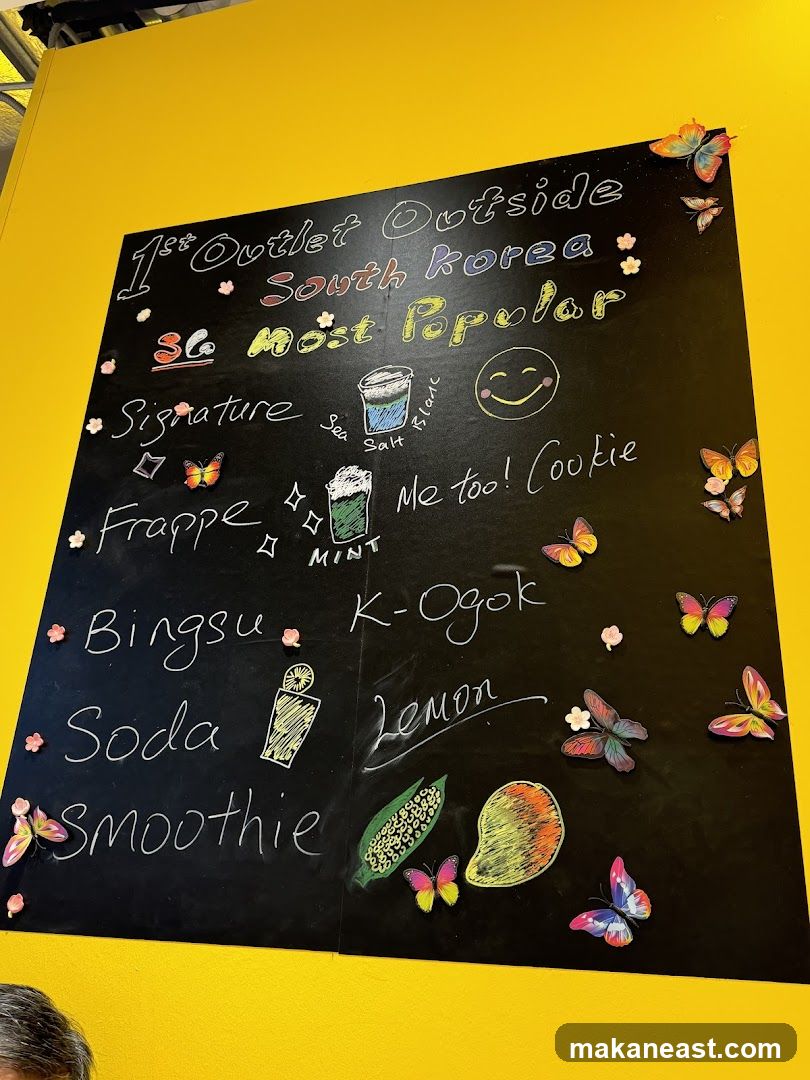 1st Outlet Outside
South Korea
Most Popular
Signature
Sea Salt Blanc
Frappe
MINT
Me too! Cookie
Bingsu
K-Ogok
Soda
Lemon
Smoothie
makaneast.com